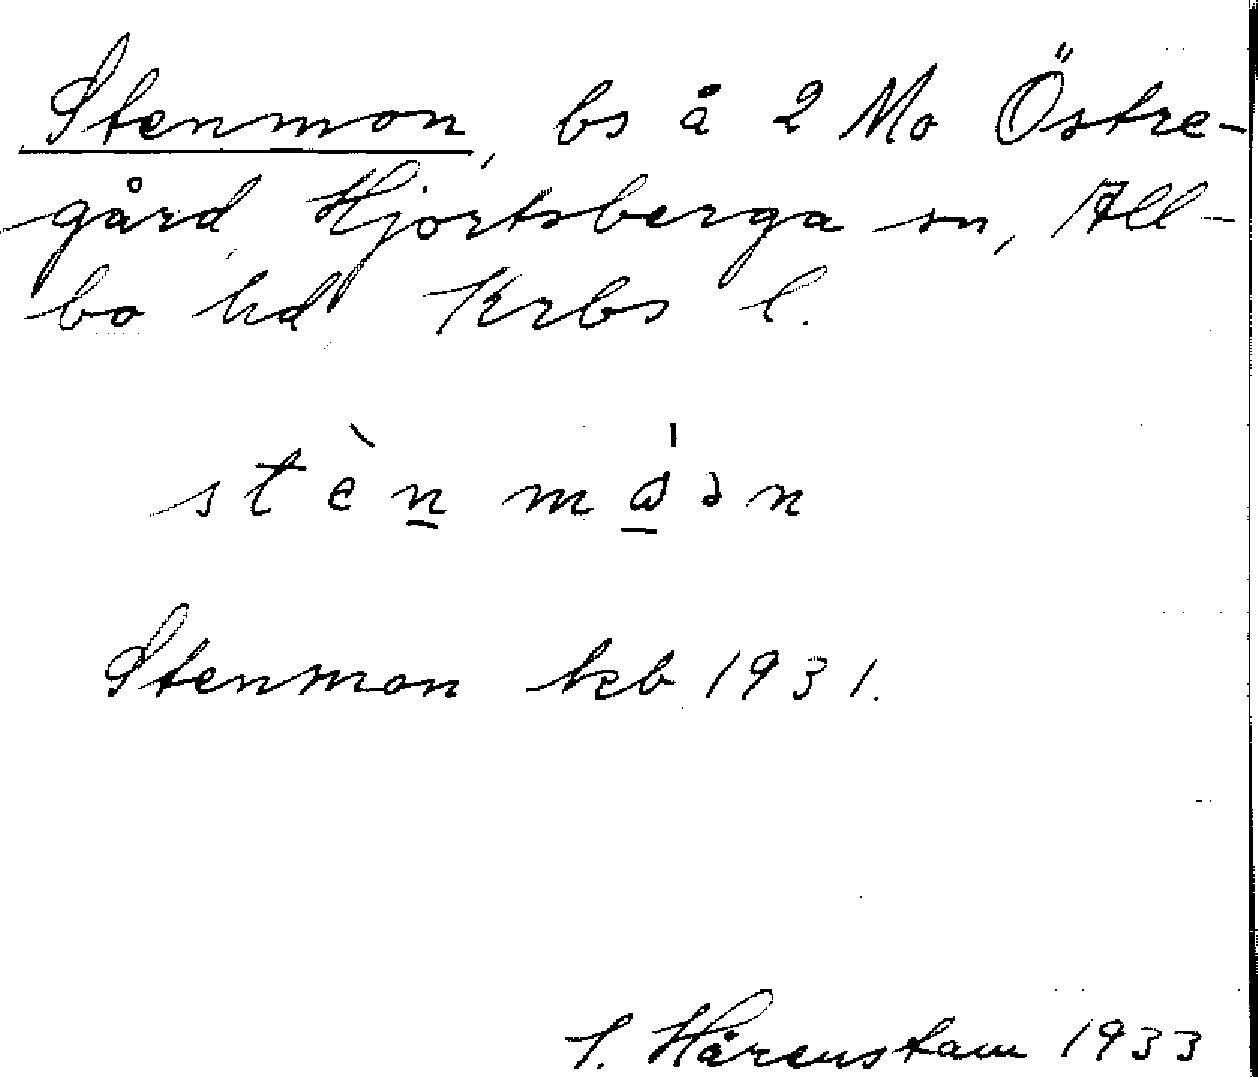 Stenmon, bs å 2 Mo Östre-
gård, Hjortsberga sn, All-
bo hd Krbs l.
stèn̲ mɷ̲́ən
Stenmon kb 1931.
S. Hårenstam 1933